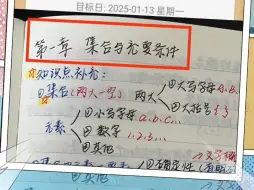 目标日: 2025-01-13 星期一
第一章 集合与充要条件
知识点补充:
①集合(两大一字) 两大 ①大写字母 A.B.
②大括号{ }
元素 ①小写字母 a.b.c...
②数字 1.2.3...
③其他
①确定性
③其他